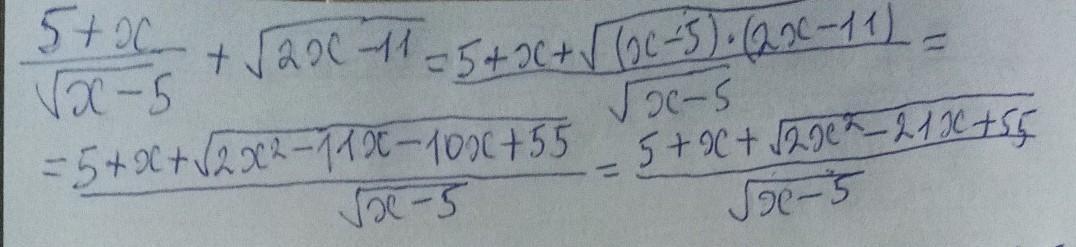 \frac{5+x}{\sqrt{x-5}} + \sqrt{2x-11} = \frac{5+x+\sqrt{(x-5)\cdot(2x-11)}}{\sqrt{x-5}} =
= \frac{5+x+\sqrt{2x^2-11x-10x+55}}{\sqrt{x-5}} = \frac{5+x+\sqrt{2x^2-21x+55}}{\sqrt{x-5}}